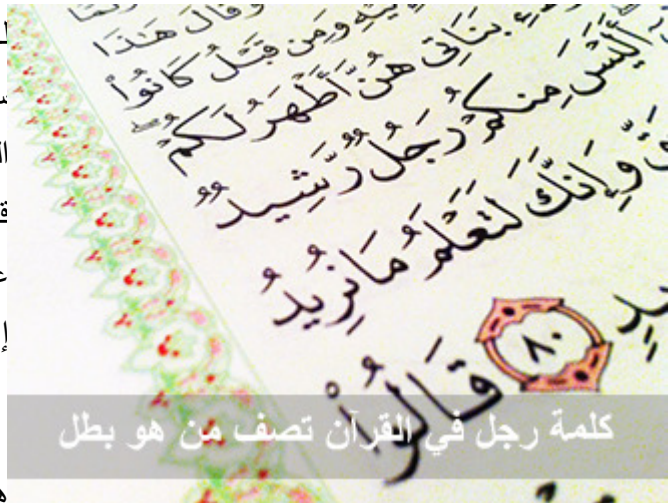 وَقَالَ هَٰذَا
وَمِن قَبْلُ كَانُوا۟
بَنَاتِى هُنَّ أَطْهَرُ لَكُمْ ۖ
أَلَيْسَ مِنكُمْ رَجُلٌ رَّشِيدٌ
وَإِنَّكَ لَتَعْلَمُ مَا نُرِيدُ
٨٠ قَالُوا۟
كلمة رجل في القرآن تصف من هو بطل